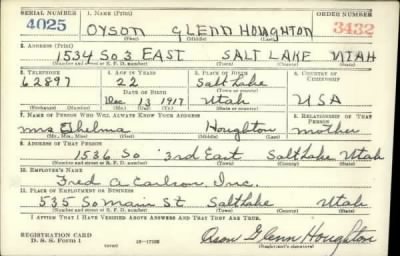 SERIAL NUMBER 1. NAME (Print) ORDER NUMBER
4025 OYSON GLENN HOUGHTON 3432
(First) (Middle) (Last)
2. ADDRESS (Print)
1534 So 3 EAST SALT LAKE UTAH
(Number and street or R. F. D. number) (Town) (County) (State)
3. TELEPHONE 4. AGE IN YEARS 5. PLACE OF BIRTH 6. COUNTRY OF CITIZENSHIP
62897 22 Salt Lake
DATE OF BIRTH (Town or county)
Dec 13 1917 Utah USA
(Exchange) (Number) (Mo.) (Day) (Yr.) (State or country)
7. NAME OF PERSON WHO WILL ALWAYS KNOW YOUR ADDRESS 8. RELATIONSHIP OF THAT PERSON
Mrs Thelma Houghton mother
(Mr., Mrs., Miss) (First) (Middle) (Last)
9. ADDRESS OF THAT PERSON
1536 So 3rd East Salt Lake Utah
(Number and street or R. F. D. number) (Town) (County) (State)
10. EMPLOYER'S NAME
Fred A Carlson, Inc.
11. PLACE OF EMPLOYMENT OR BUSINESS
535 So main St Saltlake Utah
(Number and street or R. F. D. number) (Town) (County) (State)
I AFFIRM THAT I HAVE VERIFIED ABOVE ANSWERS AND THAT THEY ARE TRUE.
REGISTRATION CARD
D. S. S. FORM 1 (over) Glenn Houghton
(Registrant's signature)